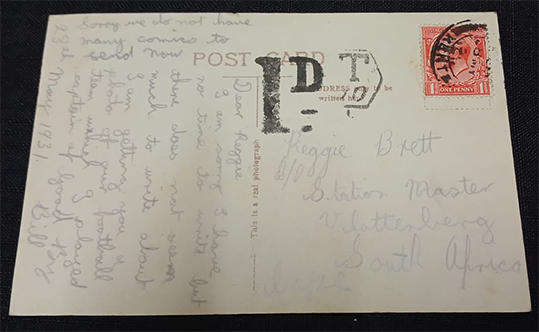 Sorry we do not have
many comics to
send now
POST CARD
Dear Reggie
I am sorry I have
no time to write but
there does not seem
much to write about
I am getting you a
photo of our football
team which I played
captain of
Bill
May 1931.
This is a real photograph
1D
T
10
ADDRESS to be
written
1 ONE PENNY 1
Reggie Brett
Station Master
Vlottenberg
South Africa